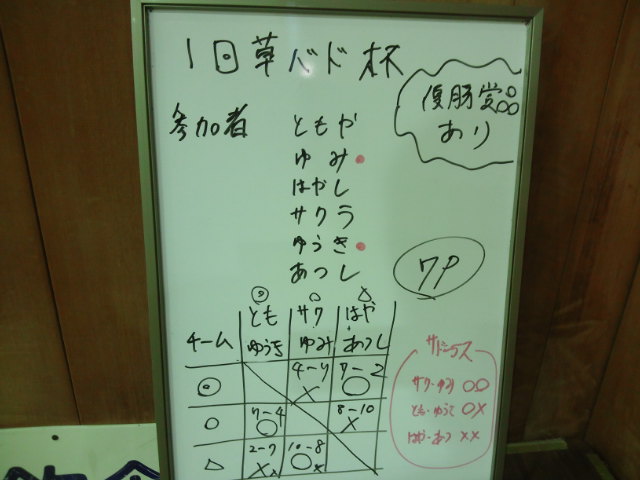 1回草バド杯
優勝賞品
あり
参加者
ともや
ゆみ
はやし
サクラ
ゆうき
あつし
7P
◎ ○ △
チーム とも ゆうき サク ゆみ はや あつし
◎ 4-7 × 7-2 ○
○ 7-4 ○ 8-10 ×
△ 2-7 × 10-8 ○
サク・ゆみ ○○
とも・ゆうき ○×
はや・あつ ××